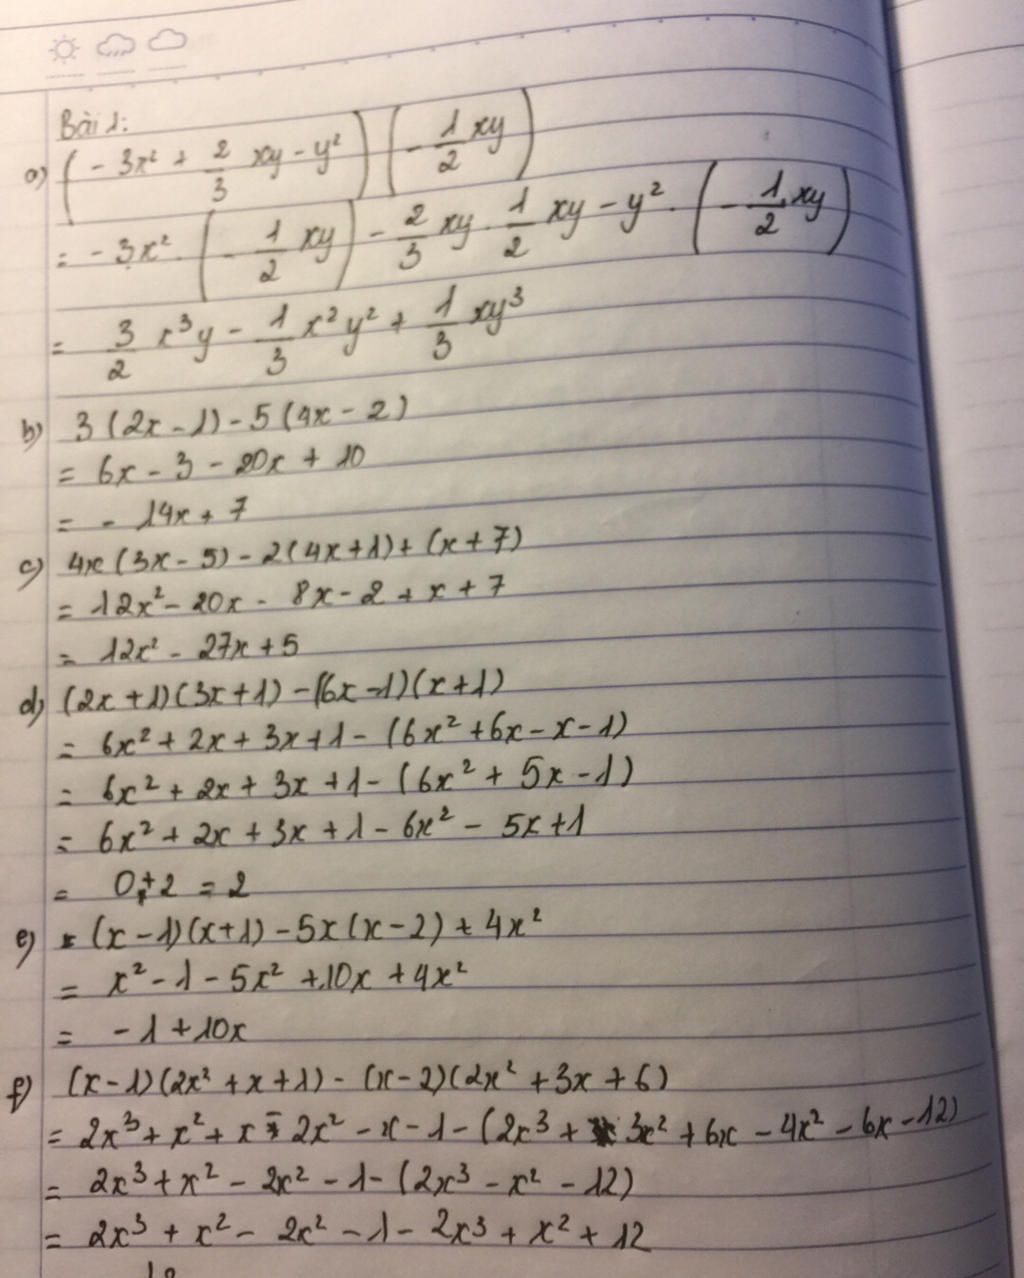 Bài 1:
a) (- 3x² + 2/3 xy - y²) (- 1/2 xy)
= - 3x² . (- 1/2 xy) - 2/3 xy . 1/2 xy - y² . (- 1/2 xy)
= 3/2 x³y - 1/3 x²y² + 1/3 xy³
b) 3(2x - 1) - 5(4x - 2)
= 6x - 3 - 20x + 10
= - 14x + 7
c) 4x(3x - 5) - 2(4x + 1) + (x + 7)
= 12x² - 20x - 8x - 2 + x + 7
= 12x² - 27x + 5
d) (2x + 1)(3x + 1) - (6x - 1)(x + 1)
= 6x² + 2x + 3x + 1 - (6x² + 6x - x - 1)
= 6x² + 2x + 3x + 1 - (6x² + 5x - 1)
= 6x² + 2x + 3x + 1 - 6x² - 5x + 1
= 0 + 2 = 2
e) (x - 1)(x + 1) - 5x(x - 2) + 4x²
= x² - 1 - 5x² + 10x + 4x²
= - 1 + 10x
f) (x - 1)(2x² + x + 1) - (x - 2)(2x² + 3x + 6)
= 2x³ + x² + x - 2x² - x - 1 - (2x³ + 3x² + 6x - 4x² - 6x - 12)
= 2x³ + x² - 2x² - 1 - (2x³ - x² - 12)
= 2x³ + x² - 2x² - 1 - 2x³ + x² + 12